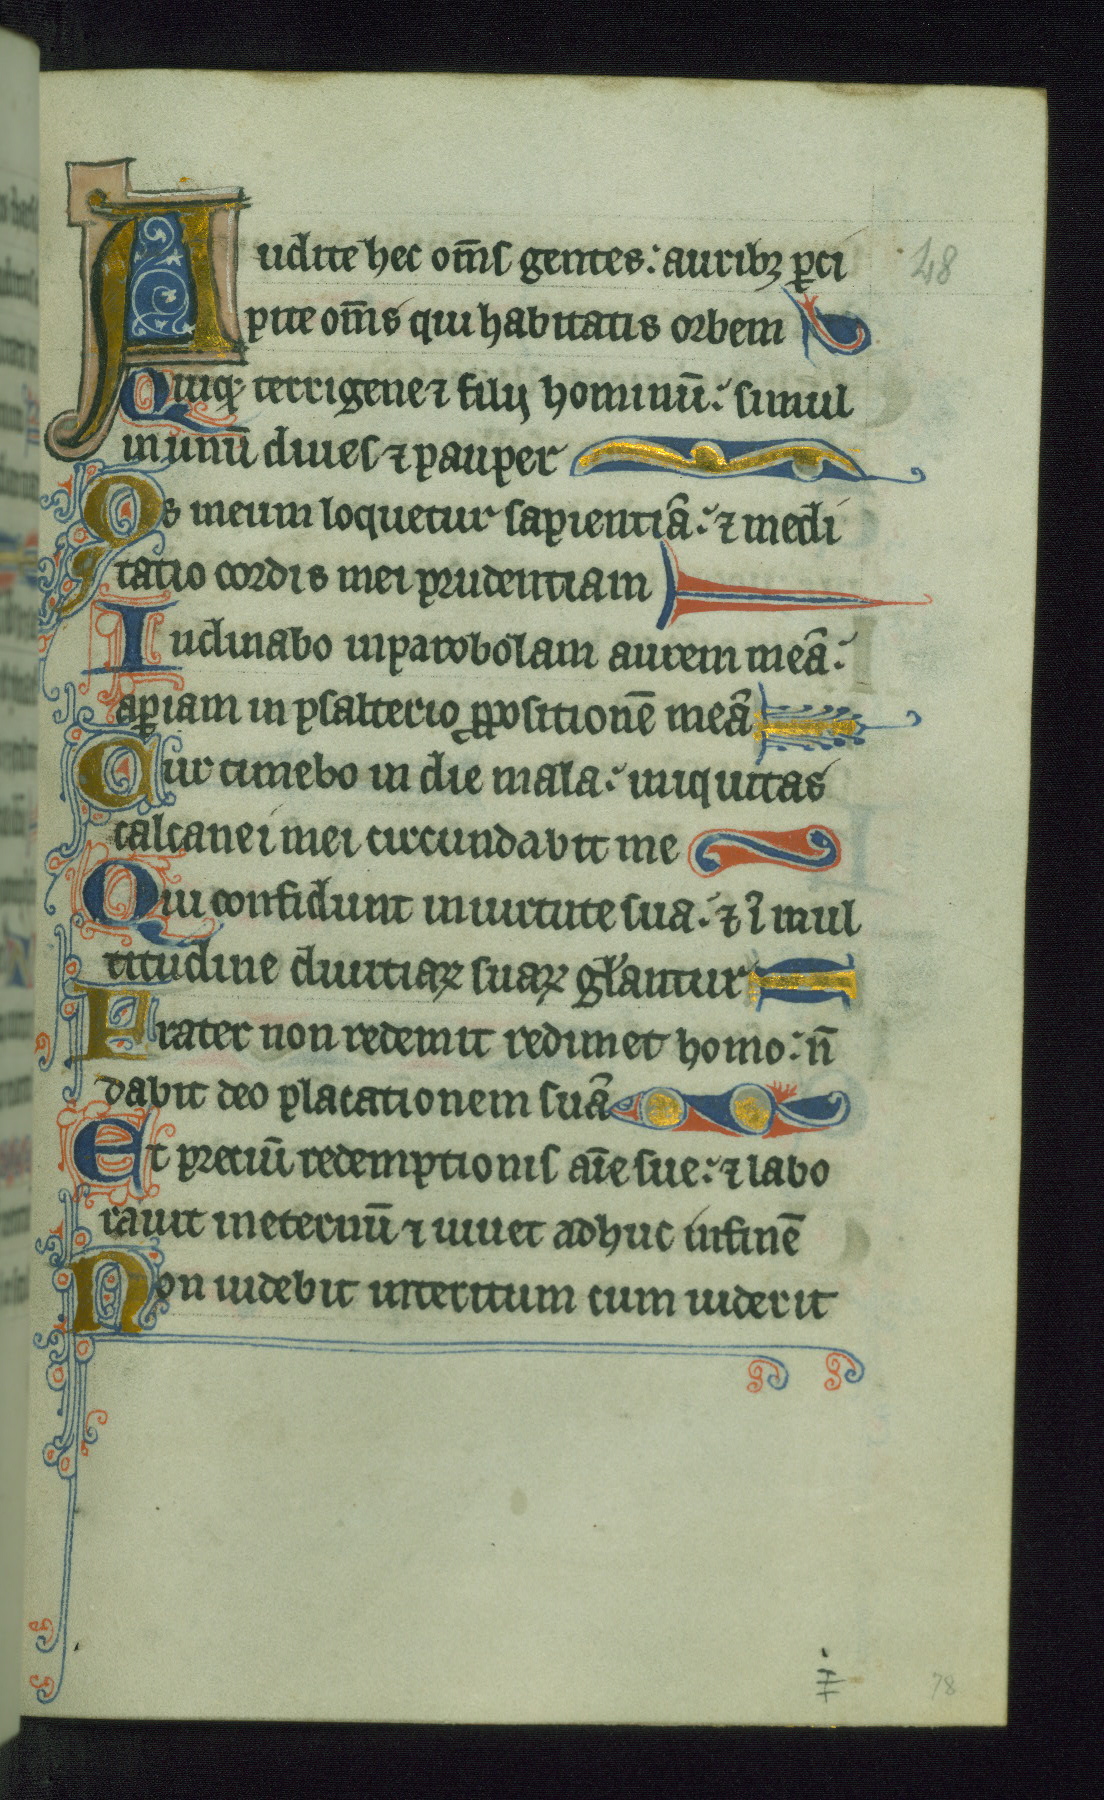 Audite hec om̄s gentes: auribꝫ ꝑci 48
pite om̄s qui habitatis orbem
Quiqꝫ terrigene ⁊ filij hominū: simul
in unū diues ⁊ pauper
Os meum loquetur sapientiā: ⁊ medi
tatio cordis mei prudentiam
Inclinabo in parabolam aurem meā:
aperiam in psalterio ꝓpositionē meā
Cur timebo in die mala: iniquitas
calcanei mei circundabit me
Qui confidunt in uirtute sua: ⁊ ī mul
titudine diuitiaꝝ suaꝝ gl̄antur
Frater non redemit redimet homo: n̄
dabit deo placationem suā
Et preciū redemptionis aīe sue: ⁊ labo
rauit in eternū ⁊ uiuet adhuc in finē
Non uidebit interitum cum uiderit
78